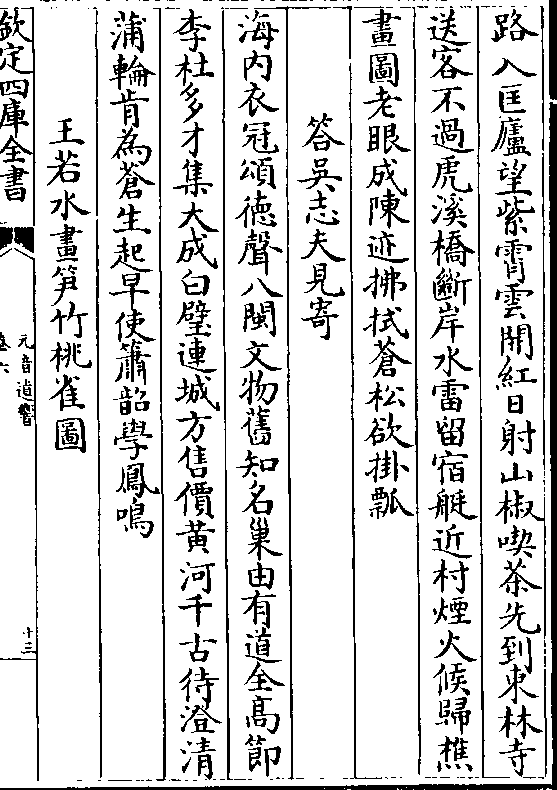 路入匡廬望紫霄雲開紅日射山椒喫茶先到東林寺
送客不過虎溪橋斷岸水雷留宿艇近村煙火候歸樵
畫圖老眼成陳迹拂拭蒼松欲掛瓢
答吳志夫見寄
海內衣冠頌德聲八閩文物舊知名巢由有道全髙節
李杜多才集大成白璧連城方售價黄河千古待澄清
蒲輪肯為蒼生起早使簫韶學鳳鳴
王若水畫笋竹桃雀圖
欽定四庫全書
元音遺響
卷六
十三